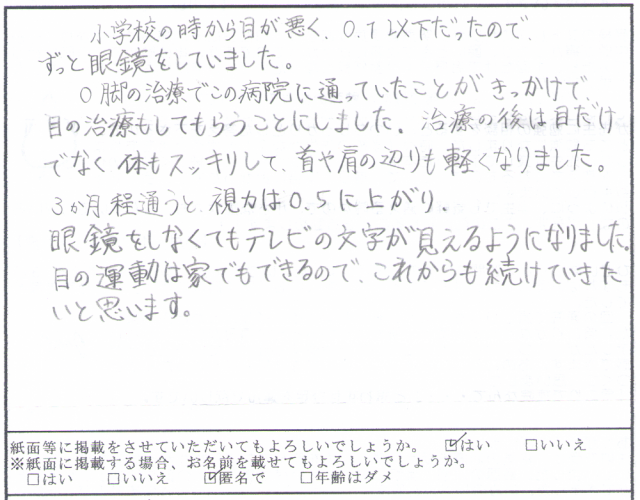 小学校の時から目が悪く、0.1以下だったので、
ずっと眼鏡をしていました。
O脚の治療でこの病院に通っていたことがきっかけで、
目の治療もしてもらうことにしました。治療の後は目だけ
でなく体もスッキリして、首や肩の辺りも軽くなりました。
3か月程通うと、視力は0.5に上がり、
眼鏡をしなくてもテレビの文字が見えるようになりました。
目の運動は家でもできるので、これからも続けていきた
いと思います。
紙面等に掲載をさせていただいてもよろしいでしょうか。 ☑はい □いいえ
※紙面に掲載する場合、お名前を載せてもよろしいでしょうか。
□はい □いいえ ☑匿名で □年齢はダメ